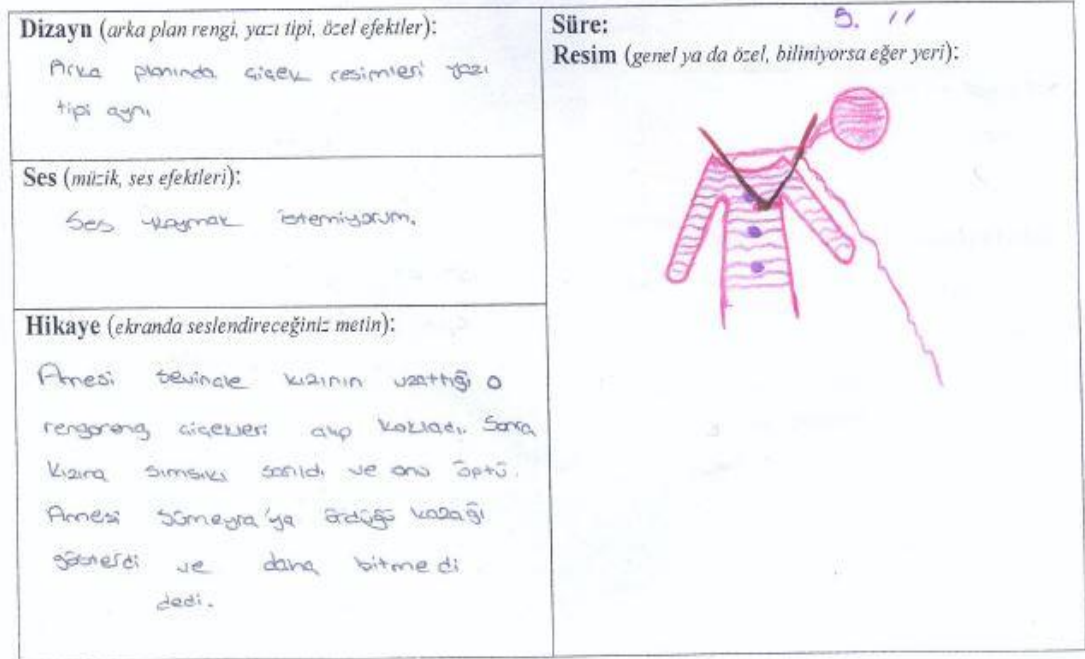 Dizayn (arka plan rengi, yazı tipi, özel efektler):
Arka planında çiçek resimleri yazı
tipi aynı
Ses (müzik, ses efektleri):
Ses koymak istemiyorum.
Hikaye (ekranda seslendireceğiniz metin):
Annesi sevinçle kızının uzattığı o
rengareng çiçekleri alıp kokladı. Sonra
kızına sımsıkı sarıldı ve onu öptü.
Annesi Sümeyra'ya ördüğü kazağı
gösterdi ve daha bitmedi
dedi.
Süre: 11
Resim (genel ya da özel, biliniyorsa eğer yeri):